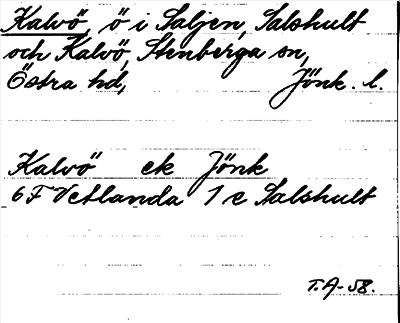 Kalvö, ö i Saljen, Salshult
och Kalvö, Stenberga sn,
Östra hd, Jönk. l.
Kalvö ek Jönk
6 F Vetlanda 1 e Salshult
T.A-58.